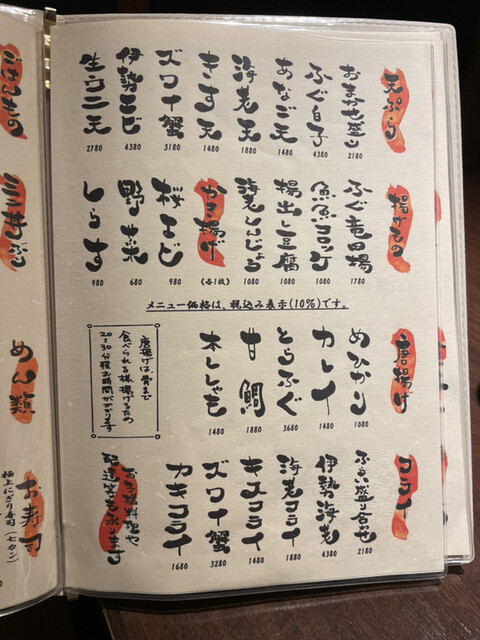 天ぷら
おまかせ盛り
2180
ふぐ白子
4380
あなご天
1480
海老天
1880
きす天
1480
ズワイ蟹
3180
伊勢エビ
4380
生ウニ天
2780
揚げもの
ふぐ竜田揚
1780
魚コロッケ
1080
揚出し豆腐
1080
海老しんじょう
1080
かき揚げ
(各1枚)
桜エビ
980
野菜
680
しらす
980
メニュー価格は、税込み表示(10%)です。
唐揚げ
めひかり
1080
カレイ
1480
とらふぐ
3680
甘鯛
1880
本ししゃも
1480
唐揚げは、骨まで
食べられる様揚げるため
20~30分程お時間がかかります
フライ
ふらい盛り合せ
2180
伊勢海老
4380
海老フライ
1880
キスフライ
1480
ズワイ蟹
3280
カキフライ
1680
ごはんもの
めん類
お寿司
極上にぎり寿司(七カン)